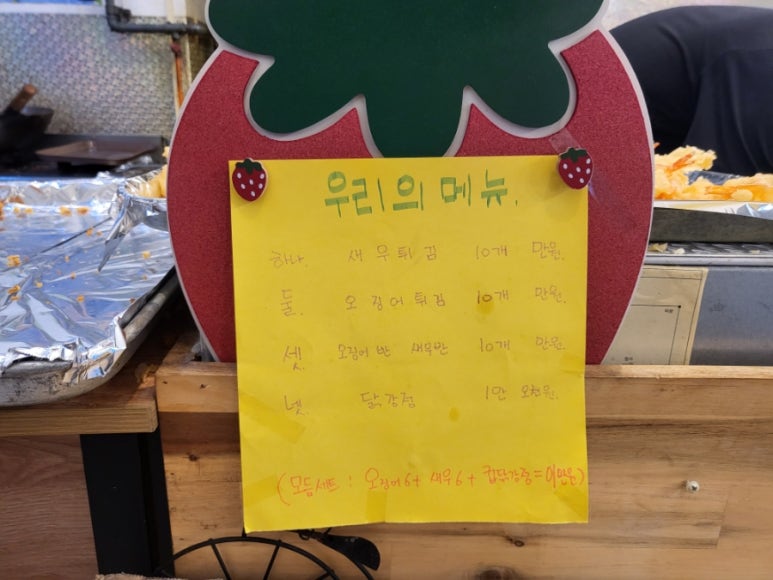 우리의 메뉴.
하나. 새우튀김 10개 만원.
둘. 오징어튀김 10개 만원.
셋. 오징어반 새우반 10개 만원.
넷. 닭강정 1만 오천원.
(모듬세트 : 오징어6+ 새우6 + 컵닭강정=이만원)